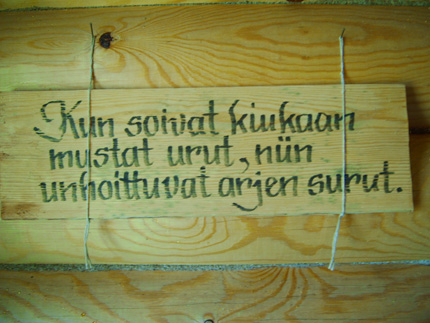 Kun soivat kiukaan
mustat urut, niin
unhoittuvat arjen surut.